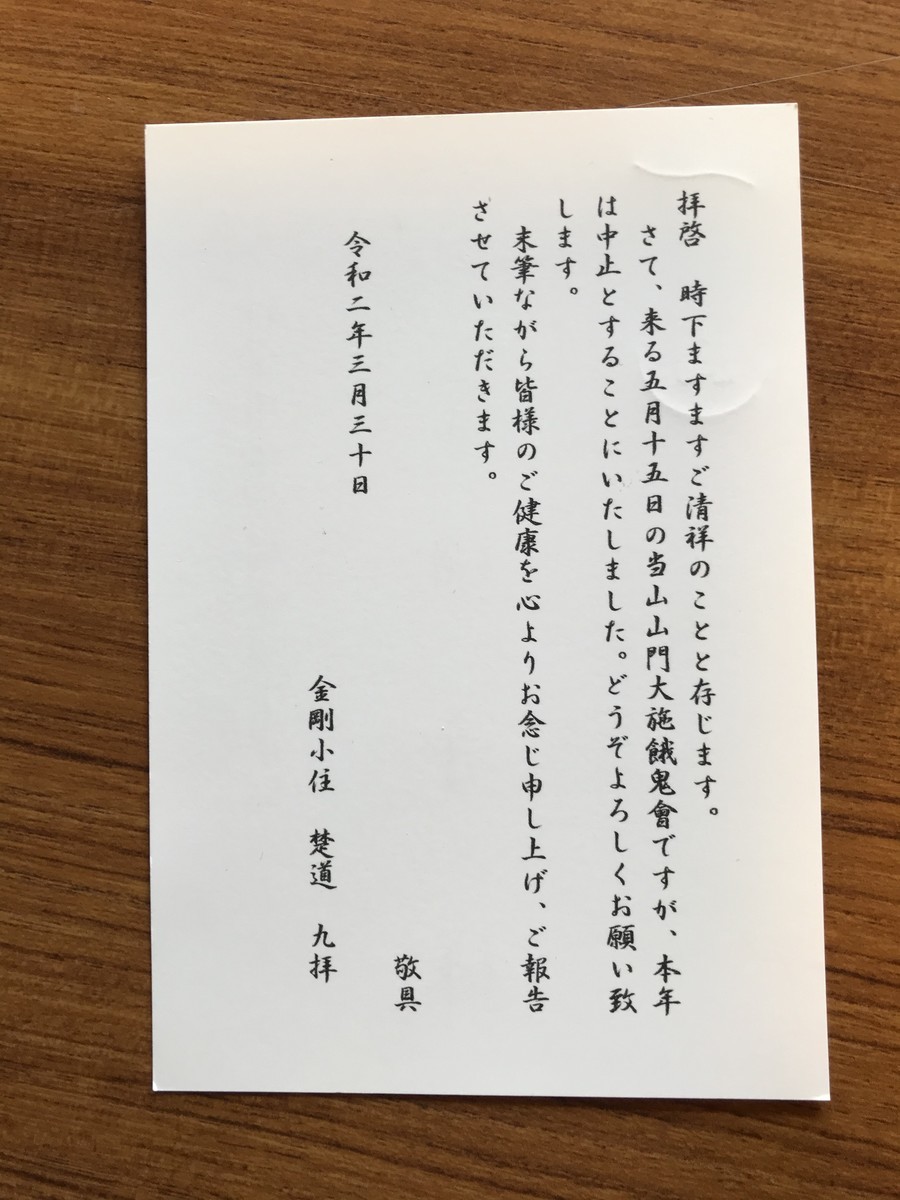 拝啓　時下ますますご清祥のことと存じます。
さて、来る五月十五日の当山山門大施餓鬼會ですが、本年
は中止とすることにいたしました。どうぞよろしくお願い致
します。
末筆ながら皆様のご健康を心よりお念じ申し上げ、ご報告
させていただきます。
敬具
令和二年三月三十日
金剛小住　楚道　九拝